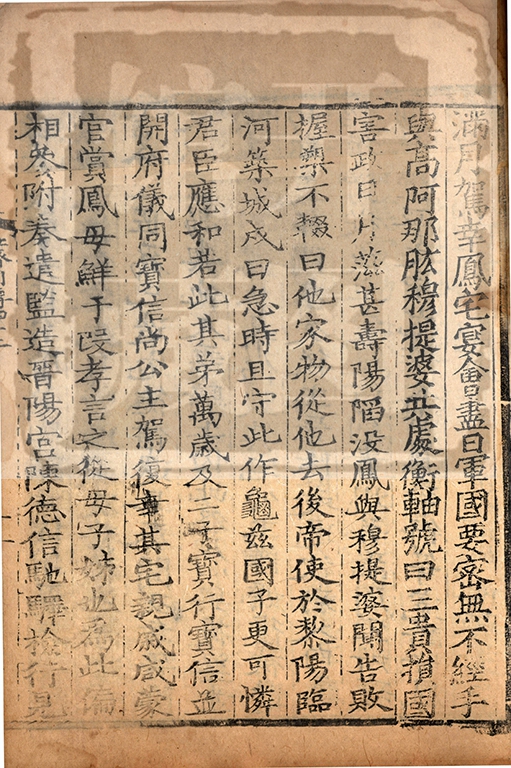 滿月駕幸鳳宅宴會盡日軍國要密無不經手
與高阿那肱穆提婆共處衡軸號曰三貴損國
害政日月滋甚壽陽陷沒鳳與穆提婆聞告敗
握槊不輟曰他家物從他去後帝使於黎陽臨
河築城戍曰急時且守此作龜茲國子更可憐
君臣應和若此其弟萬歲及二子寶行寶信並
開府儀同寶信尚公主駕復幸其宅親戚咸蒙
官賞鳳母鮮于段孝言之從母子姊也爲此偏
相參附奏遣監造晉陽宮陳德信馳驛檢行見